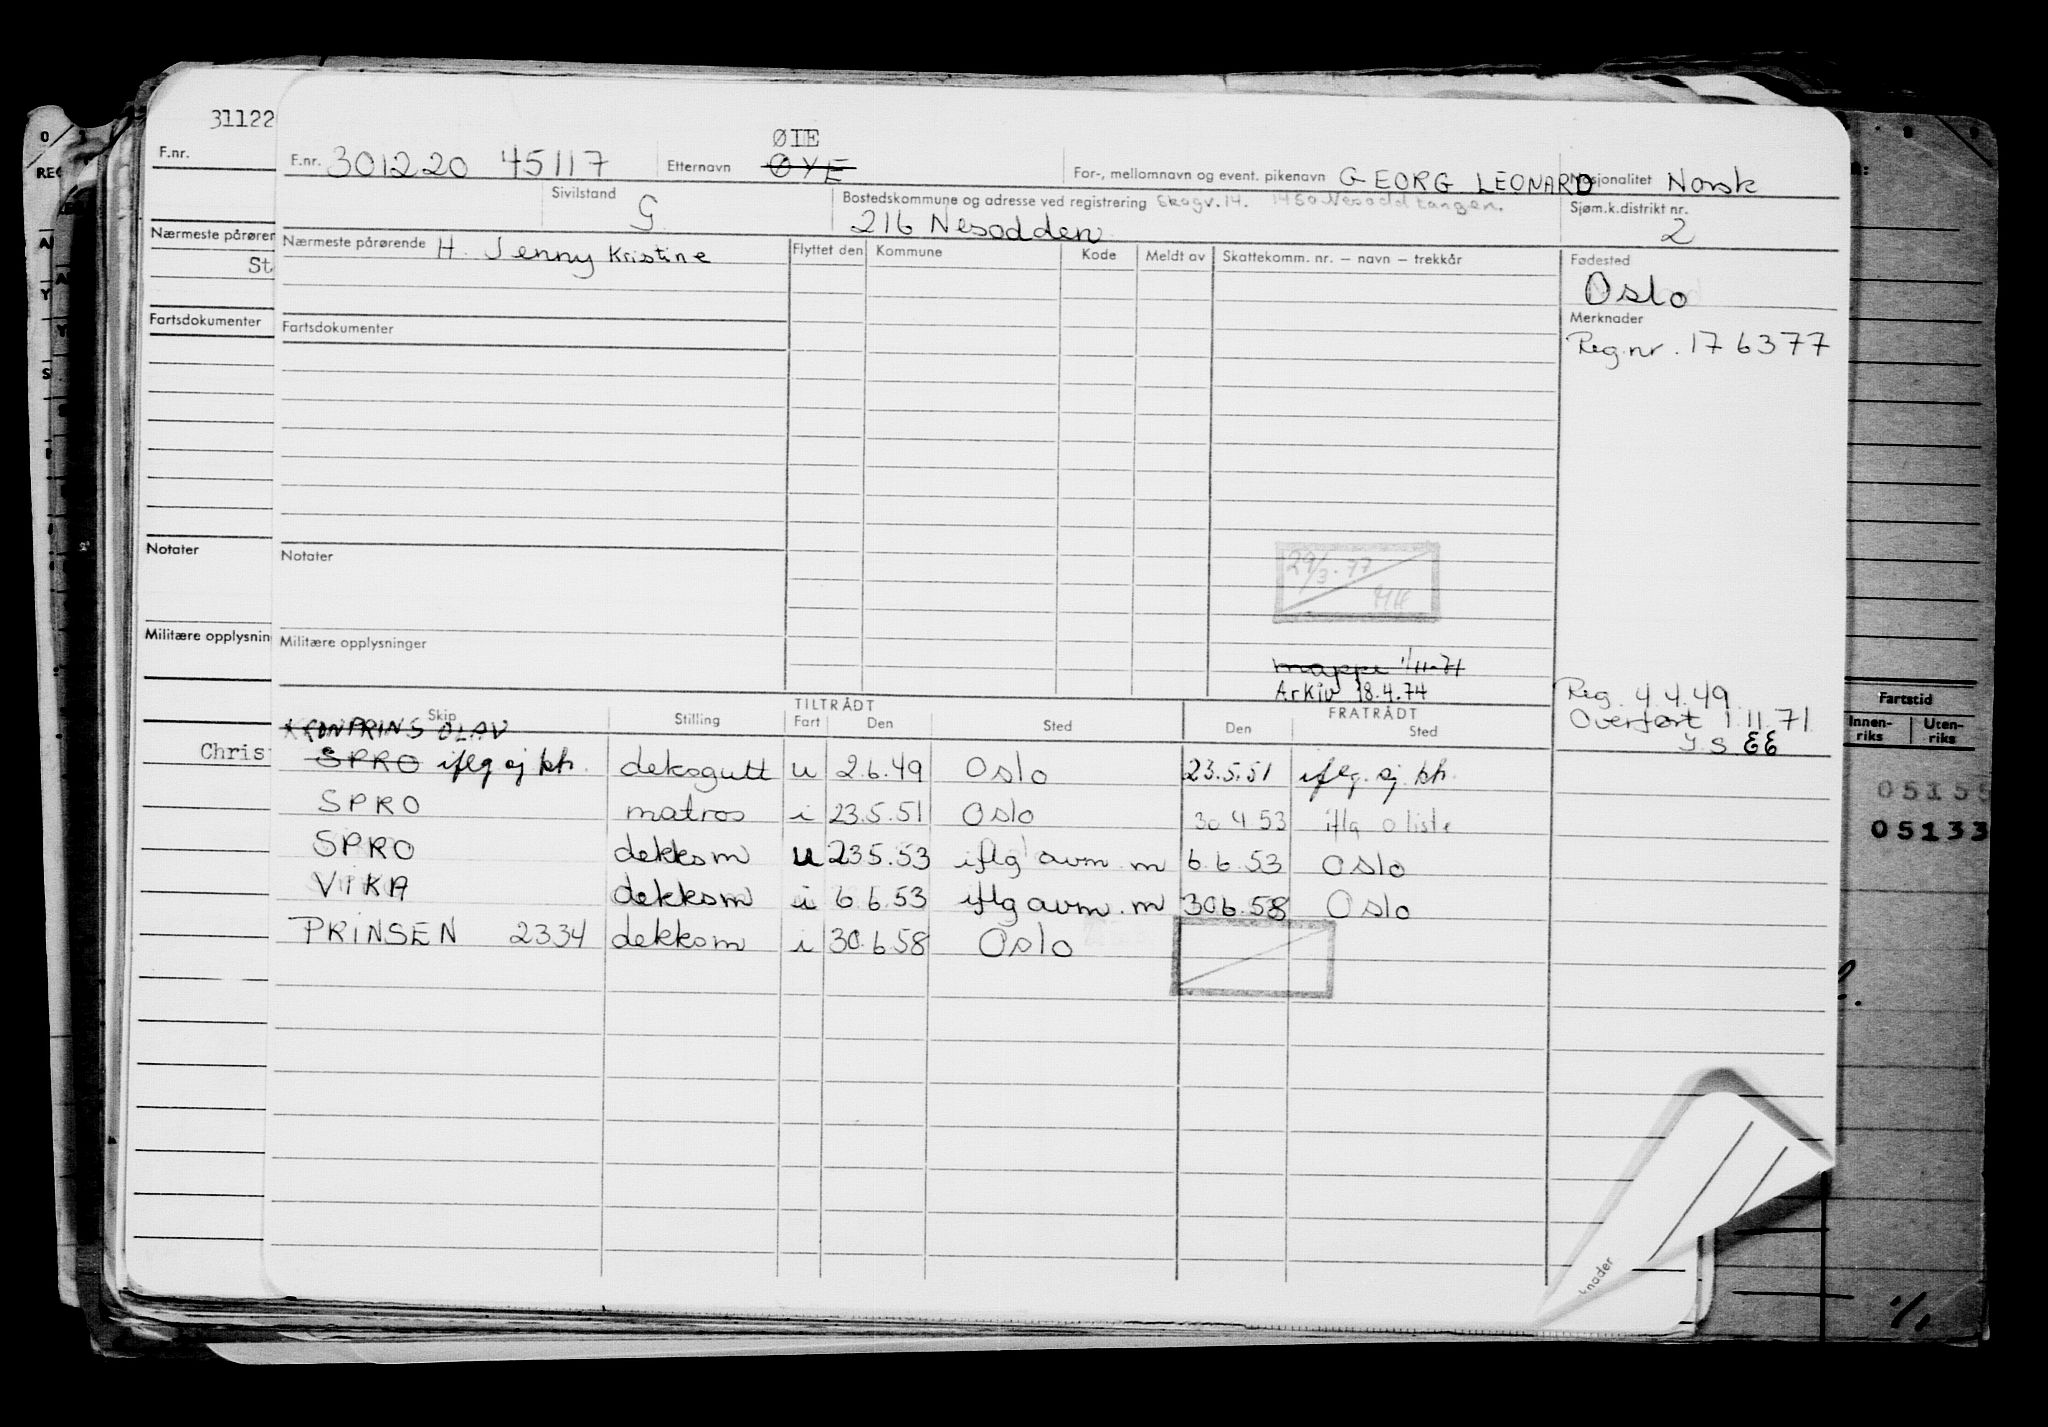 31122
F.nr.
Nærmeste pårøren
St
Fartsdokumenter
Notater
Militære opplysnin
Chris
ØIE
F.nr. 301220 45117 Etternavn ØYE For-, mellomnavn og event. pikenavn GEORG LEONARD Nasjonalitet Norsk
Sivilstand G Bostedskommune og adresse ved registrering Skogv. 14. 1450 Nesoddtangen. Sjøm.k.distrikt nr.
216 Nesodden 2
Nærmeste pårørende H. Jenny Kristine Flyttet den Kommune Kode Meldt av Skattekomm. nr. – navn – trekkår Fødested
Oslo
Fartsdokumenter Merknader
Reg.nr. 176377
Notater
29/3.77
HH
Militære opplysninger
mappe 1/11-71
Arkiv 18.4.74
Reg. 4.4.49
Overført 1.11.71
Y.S. EE
TILTRÅDT FRATRÅDT
Skip Stilling Fart Den Sted Den Sted
KRONPRINS OLAV
SPRO iflg sj bk. deksgutt u 2.6.49 Oslo 23.5.51 iflg. sj. bk.
SPRO matros i 23.5.51 Oslo 30 4 53 iflg o liste
SPRO dekksm u 23.5.53 iflg avm. m 6.6.53 Oslo
VIKA dekksm i 6.6.53 iflg avm. m 30.6.58 Oslo
PRINSEN 2334 dekksm i 30.6.58 Oslo
Fartstid
Innen-riks Uten-riks
05155
05133
knader
1/1